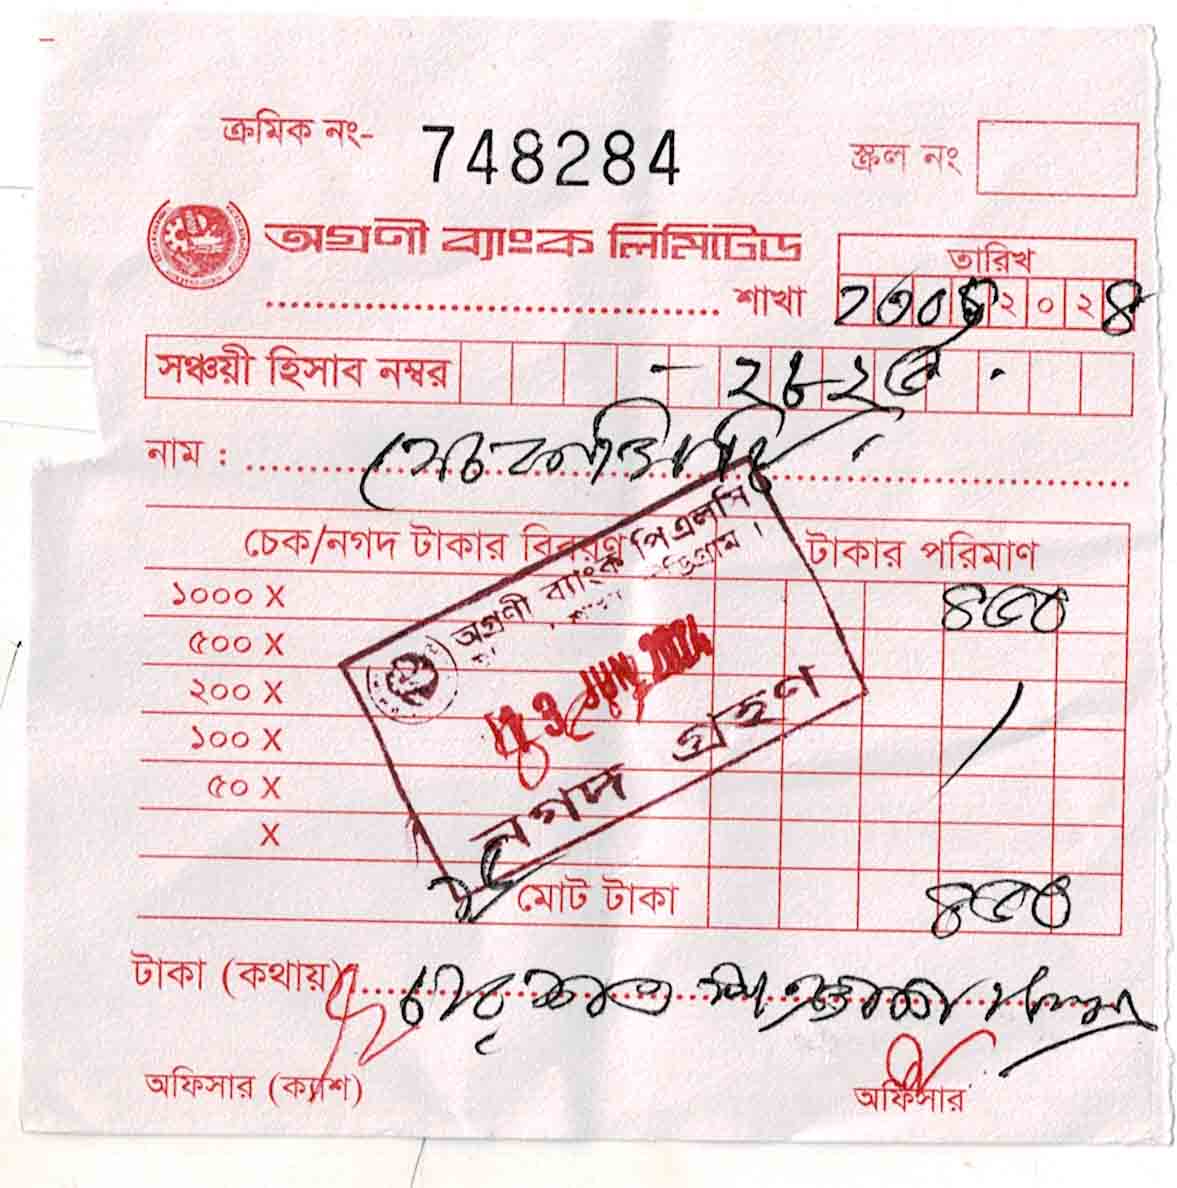 ক্রমিক নং- 748284
স্ক্রল নং
অগ্রণী ব্যাংক লিমিটেড
তারিখ
.................................... শাখা
২ ০ ২ ৪
সঞ্চয়ী হিসাব নম্বর
নাম :
চেক/নগদ টাকার বিবরণ টাকার পরিমাণ
১০০০ X ৪৫০
৫০০ X
২০০ X
১০০ X
৫০ X
X
মোট টাকা ৪৫০
অগ্রণী ব্যাংক পিএলসি
3 JUN 2024
নগদ গ্রহণ
টাকা (কথায়)
অফিসার (ক্যাশ) অফিসার